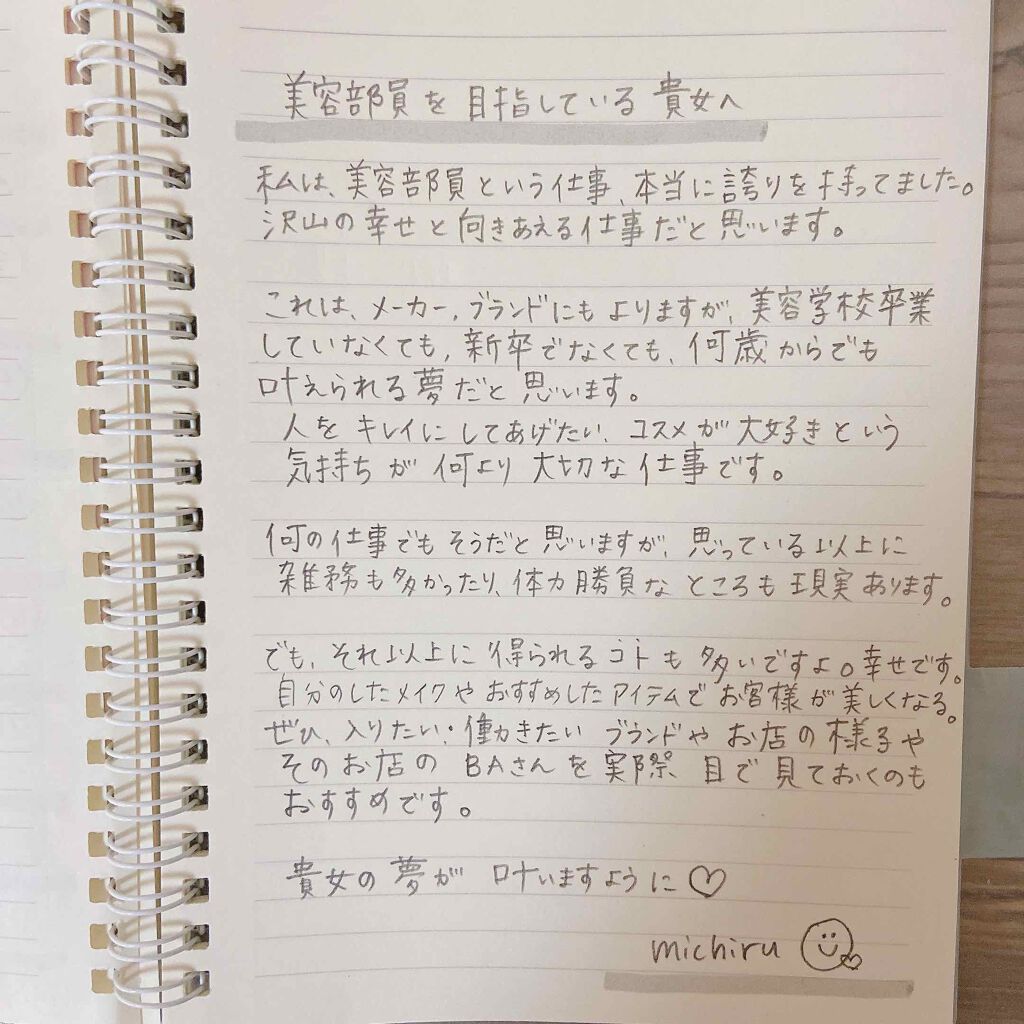 美容部員を目指している貴女へ
私は、美容部員という仕事、本当に誇りを持ってました。
沢山の幸せと向きあえる仕事だと思います。
これは、メーカー、ブランドにもよりますが、美容学校卒業
していなくても、新卒でなくても、何歳からでも
叶えられる夢だと思います。
人をキレイにしてあげたい、コスメが大好きという
気持ちが何より大切な仕事です。
何の仕事でもそうだと思いますが、思っている以上に
雑務も多かったり、体力勝負なところも現実あります。
でも、それ以上に得られるコトも多いですよ。幸せです。
自分のしたメイクやおすすめしたアイテムでお客様が美しくなる。
ぜひ、入りたい・働きたいブランドやお店の様子や
そのお店のBAさんを実際、目で見ておくのも
おすすめです。
貴女の夢が叶いますように♡
michiru